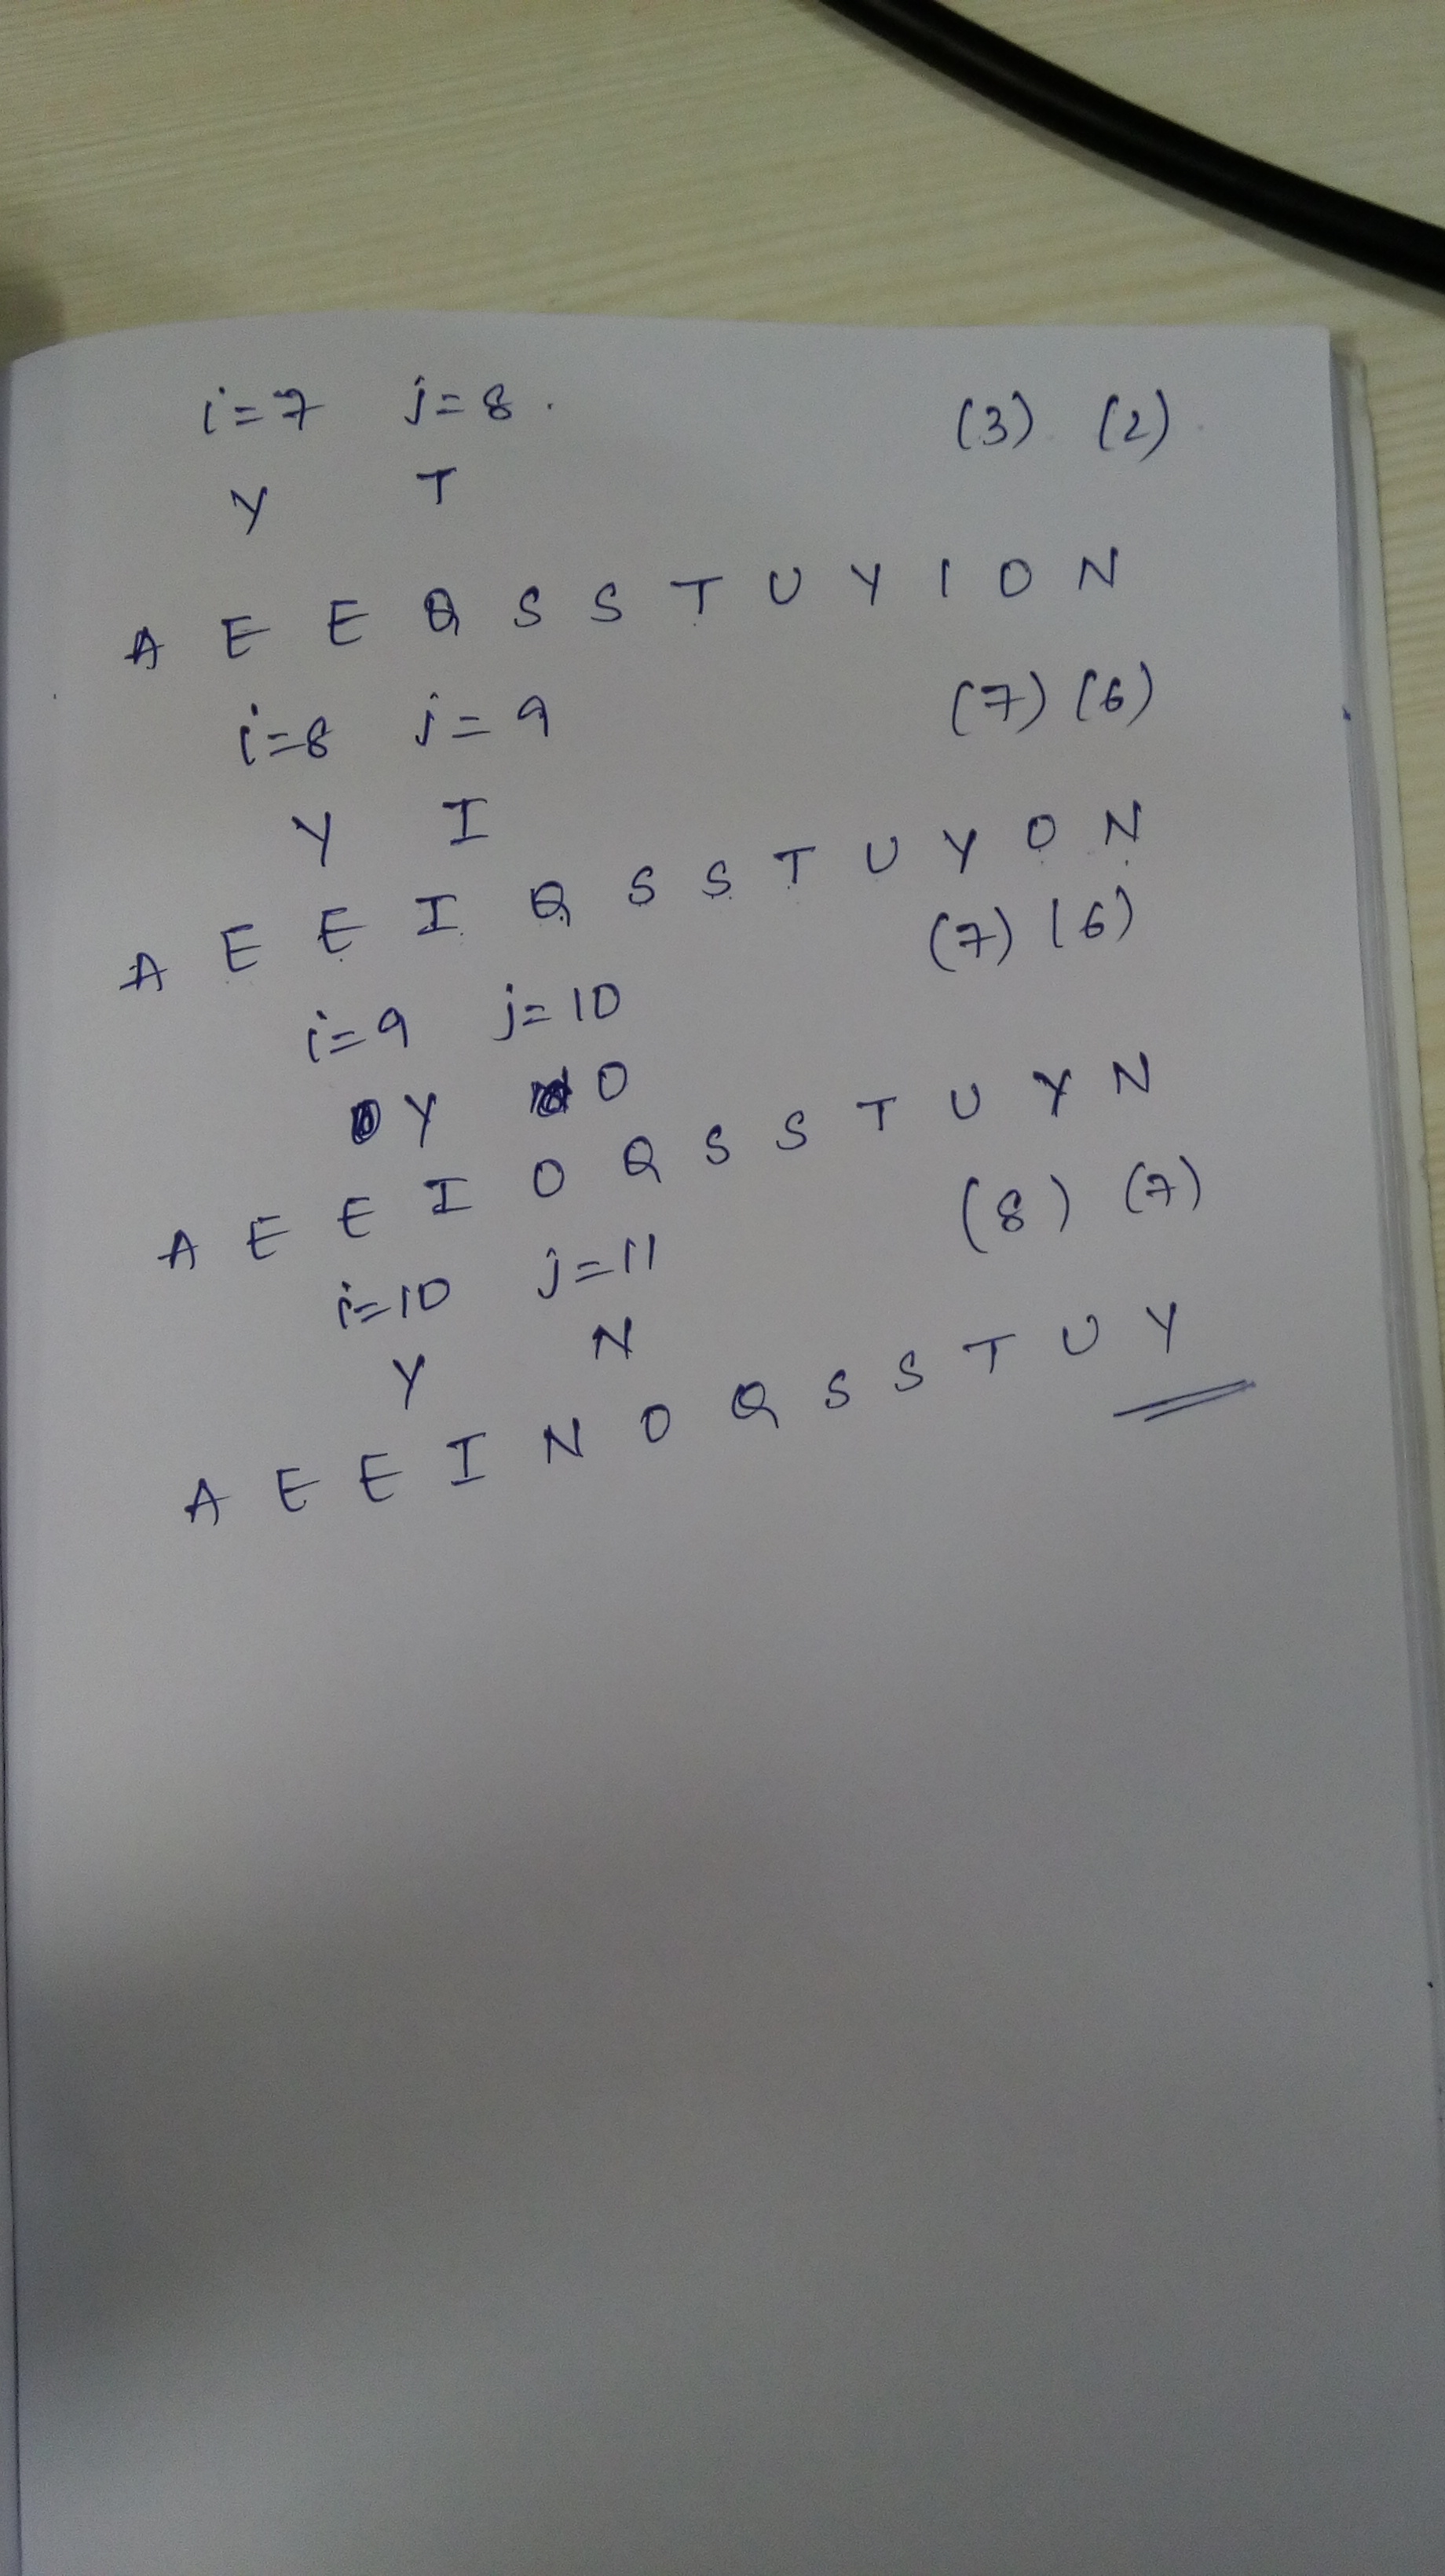 i=7 j=8. (3) (2)
Y T
A E E Q S S T U Y I O N
i=8 j=9 (7) (6)
Y I
A E E I Q S S T U Y O N
(7) (6)
i=9 j=10
Y O
A E E I O Q S S T U Y N
i=10 j=11 (8) (7)
Y N
A E E I N O Q S S T U Y